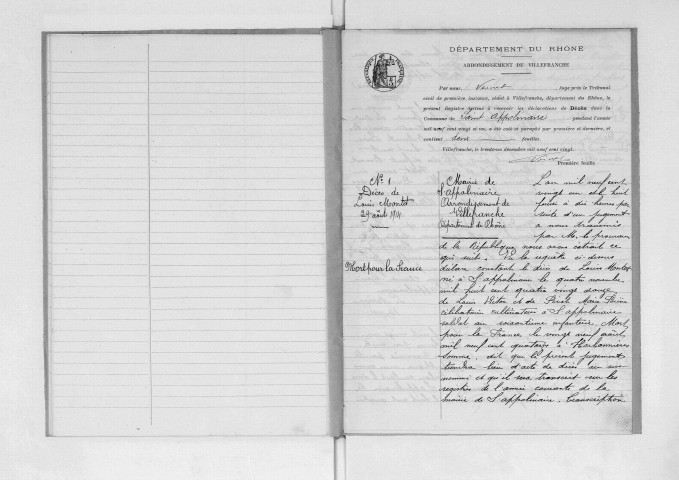 DÉPARTEMENT DU RHÔNE
ARRONDISSEMENT DE VILLEFRANCHE
Par nous, Juge près le Tribunal
civil de première instance, séant à Villefranche, département du Rhône, le
présent Registre destiné à recevoir les déclarations de Décès dans la
Commune de Saint Appolinaire pendant l'année
mil neuf cent vingt et un, a été coté et paraphé par première et dernière, et
contient feuilles.
Villefranche, le décembre mil neuf cent vingt.
Première feuille
N° 1
Décès de
Louis Montet
29 août 1914
Mort pour la France
Mairie de
St Appolinaire
Arrondissement de
Villefranche
Département du Rhône
L'an mil neuf cent
vingt un et le huit
à dix heures par
suite d'un jugement
a nous transmis
par M. le procureur
de la République nous avons extrait ce
qui suit. Vu la requête ci-dessus
constant le décès de Louis Montet
né à St appolinaire le quatre
mil huit cent quatre vingt douze
de Louis et de Marie
célibataire cultivateur à St appolinaire
soldat au soixantième infanterie, Mort
pour la France le vingt neuf août
mil neuf cent quatorze à Harbonnières
Somme, dit que le présent jugement
tiendra lieu d'acte de décès au sus
nommé et qu'il sera transcrit sur les
registres de l'année courante de la
mairie de St appolinaire. Transcription